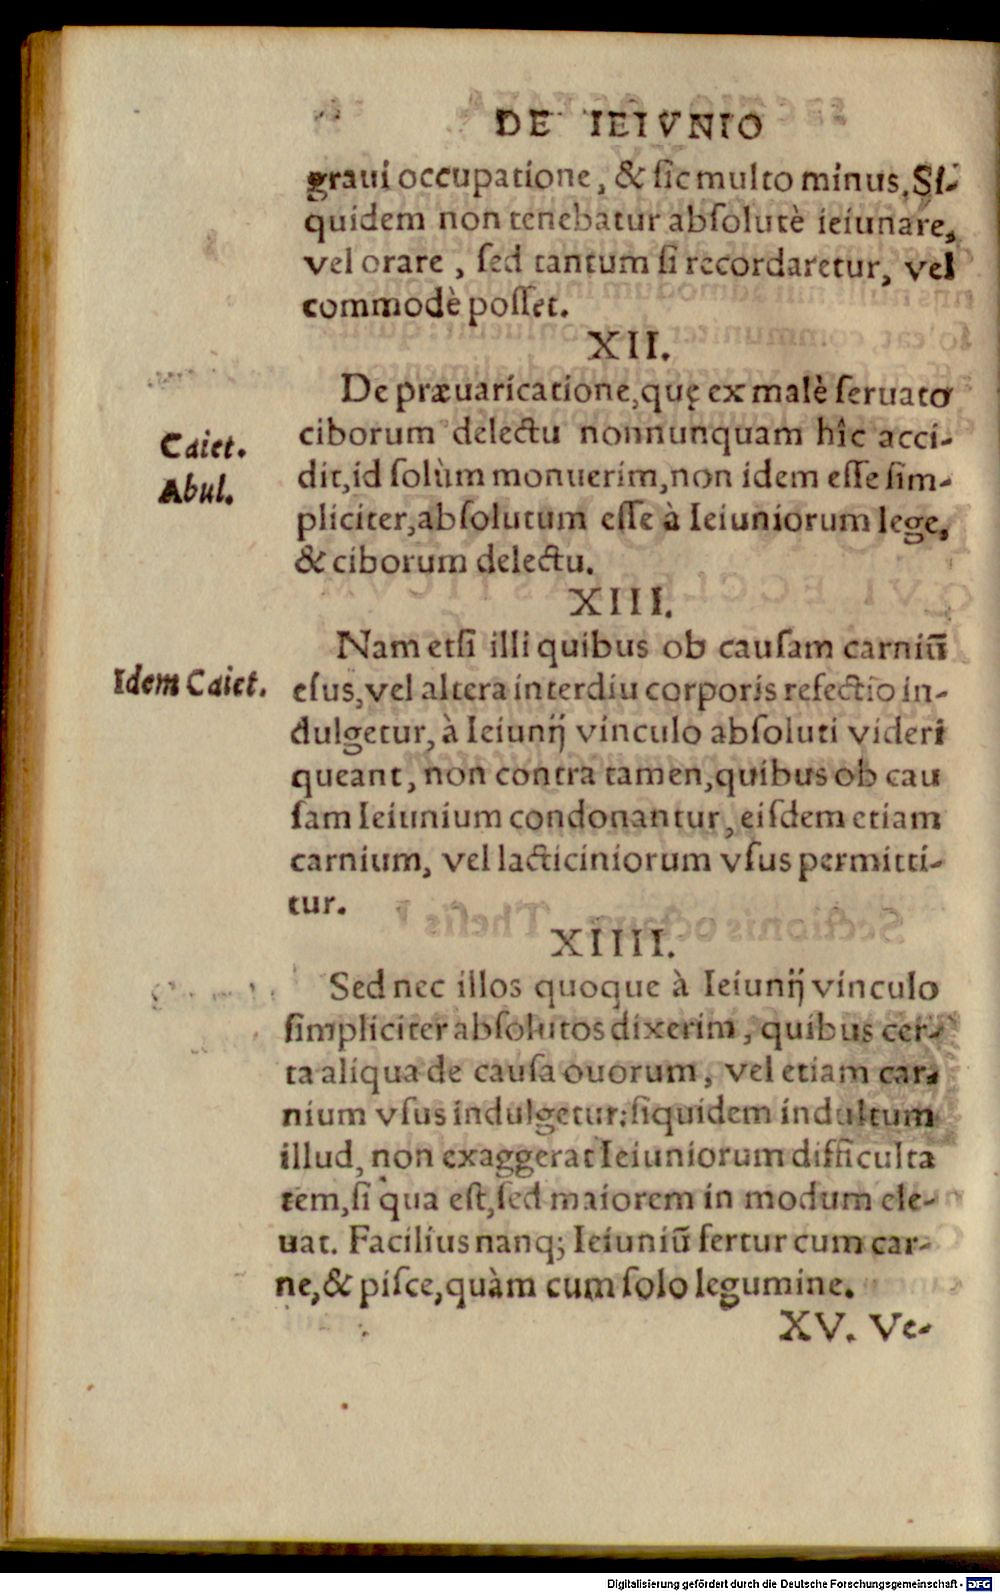 DE IEIVNIO
graui occupatione, & ſic multo minus. Si-
quidem non tenebatur abſolutè ieiunare,
vel orare, ſed tantum ſi recordaretur, vel
commodè poſſet.
XII.
De præuaricatione, quę ex malè ſeruato
ciborum delectu nonnunquam hîc acci-
Caiet.
dit, id ſolùm monuerim, non idem eſſe ſim-
Abul.
pliciter, abſolutum eſſe à Ieiuniorum lege,
& ciborum delectu.
XIII.
Nam etſi illi quibus ob cauſam carniũ
Idem Caiet.
eſus, vel altera interdiu corporis refectio in-
dulgetur, à Ieiunij vinculo abſoluti videri
queant, non contra tamen, quibus ob cau
ſam Ieiunium condonantur, eiſdem etiam
carnium, vel lacticiniorum vſus permitti-
tur.
XIIII.
Sed nec illos quoque à Ieiunij vinculo
ſimpliciter abſolutos dixerim, quibus cer-
ta aliqua de cauſa ouorum, vel etiam car-
nium vſus indulgetur: ſiquidem indultum
illud, non exaggerat Ieiuniorum difficulta
tem, ſi qua eſt, ſed maiorem in modum ele-
uat. Facilius nanq; Ieiuniũ fertur cum car-
ne, & piſce, quàm cum ſolo legumine.
XV. Ve-
Digitalisierung gefördert durch die Deutsche Forschungsgemeinschaft - DFG